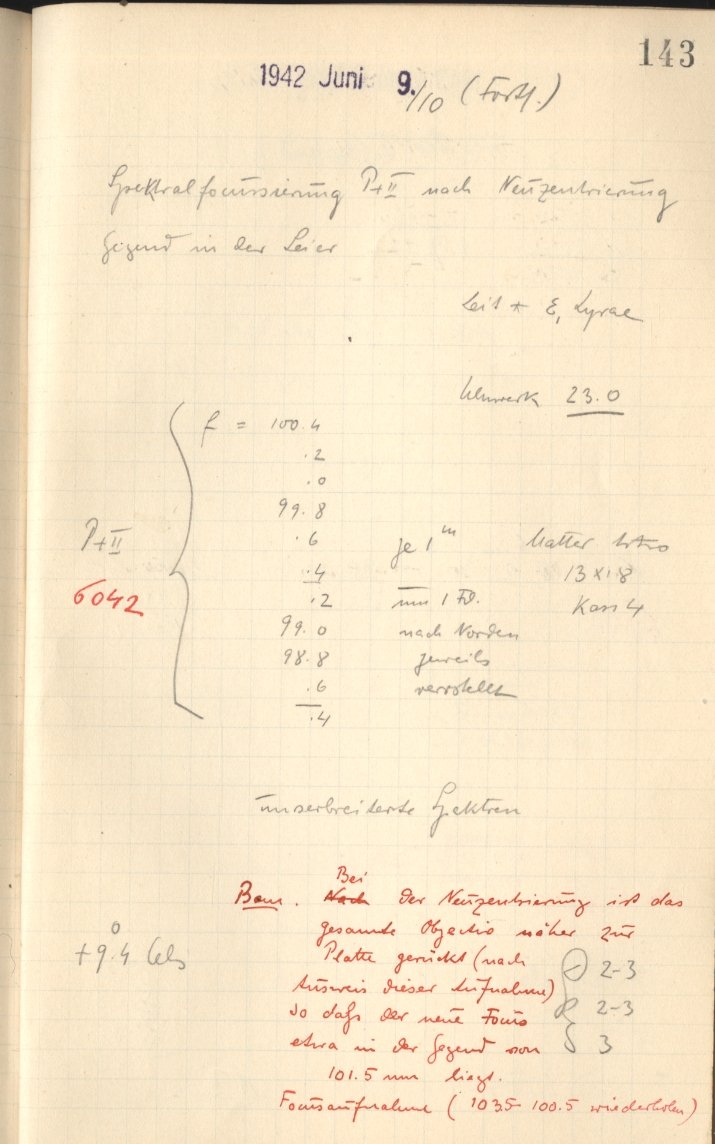 143
1942 Juni 9./10 (Forts.)
Spektralfocussierung P+II nach Neuzentrierung
Gegend in der Leier
Leit * ε, Lyrae
Uhrwerk 23.0
f = 100.4
.2
.0
99.8
P+II .6 je 1m Platten
.4 13 x 18
6042 .2 um 1 Kass 4
99.0 nach Norden
98.8 jeweils
.6 verstellt
.4
unverbreiterte Spektren
Bei
Bem. Nach der Neuzentrierung ist das
gesamte Objectiv näher zur
+9.4° Cels Platte gerückt (nach 2-3
Ausweis dieser Aufnahme)
so daß der neue Focus 2-3
etwa in der Gegend von 3
101.5 mm liegt.
Focusaufnahme (103.5-100.5 wiederholen)